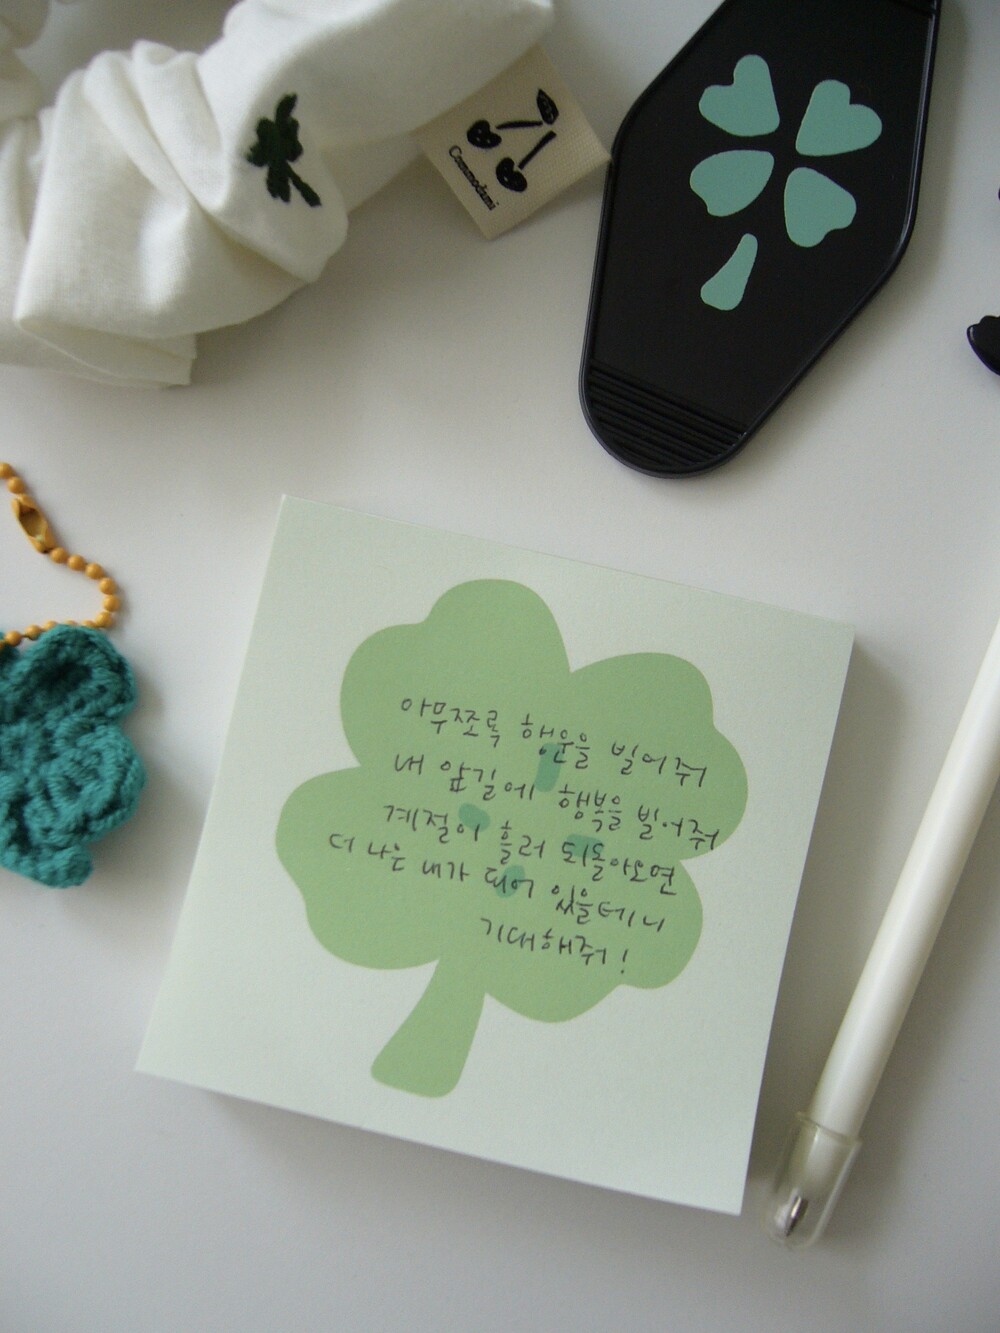 Commodami
아무쪼록 행운을 빌어줘
내 앞길에 행복을 빌어줘
계절이 흘러 되돌아오면
더 나은 내가 되어 있을테니
기대해줘!